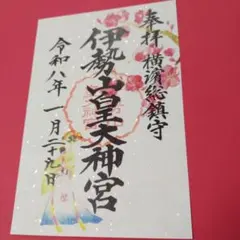 奉拝 横濱総鎮守
伊勢山皇大神宮
令和八年一月二十九日